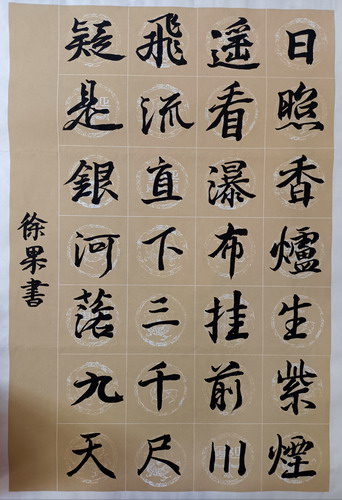 日照香爐生紫煙
遥看瀑布挂前川
飛流直下三千尺
疑是銀河落九天
徐果書